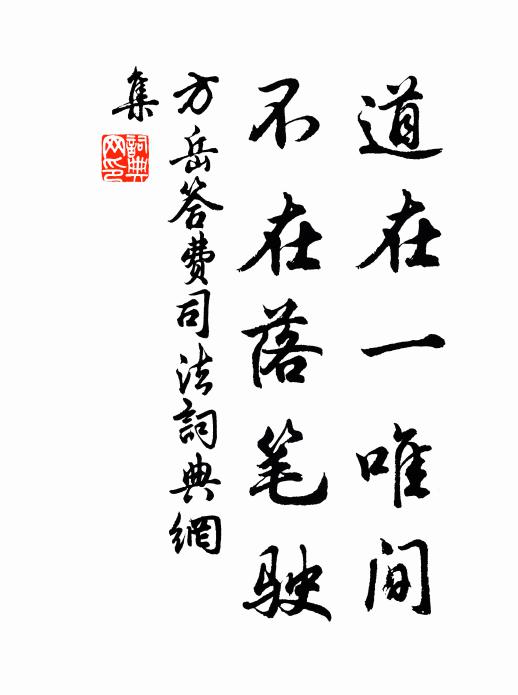 道在一唯间
不在落笔驶
方岳答费司法詞典網
集
詞典
网印